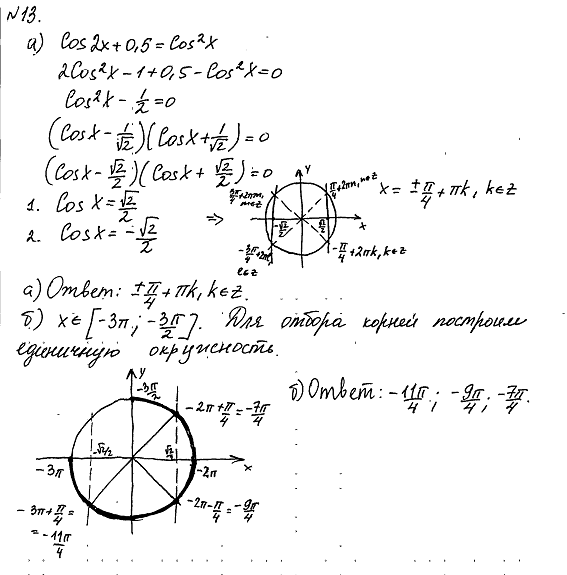 №13.
а) Cos2x+0,5=Cos²x
2Cos²x-1+0,5-Cos²x=0
Cos²x-1/2=0
(Cosx-1/√2)(Cosx+1/√2)=0
(Cosx-√2/2)(Cosx+√2/2)=0
1. Cosx=√2/2
2. Cosx=-√2/2
=>
y
3π/4+2πm, m∈z
π/4+2πn, n∈z
-√2/2
√2/2
x
-3π/4+2πl, l∈z
-π/4+2πk, k∈z
x=±π/4+πk, k∈z
а) Ответ: ±π/4+πk, k∈z.
б) x∈[-3π; -3π/2]. Для отбора корней построим
единичную окружность.
y
-3π/2
-2π+π/4=-7π/4
-√2/2
√2/2
-3π
-2π
x
-3π+π/4=
=-11π/4
-2π-π/4=-9π/4
б) Ответ: -11π/4; -9π/4; -7π/4.